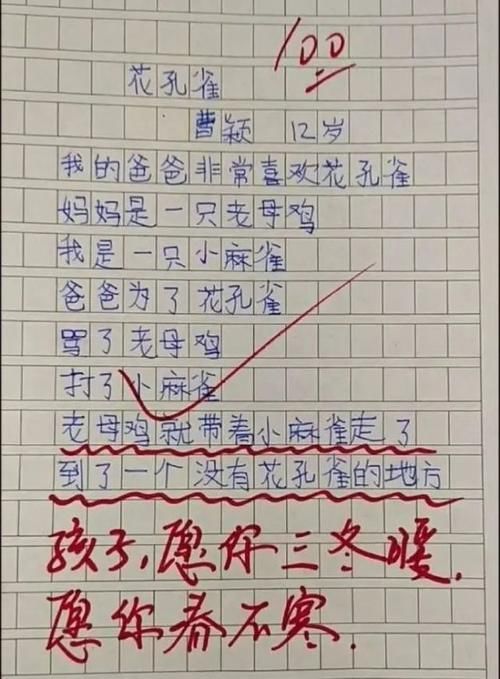 100
花孔雀
曹颖 12岁
我的爸爸非常喜欢花孔雀
妈妈是一只老母鸡
我是一只小麻雀
爸爸为了花孔雀
骂了老母鸡
打了小麻雀
老母鸡就带着小麻雀走了
到了一个没有花孔雀的地方
孩子,愿你三冬暖,
愿你春不寒.